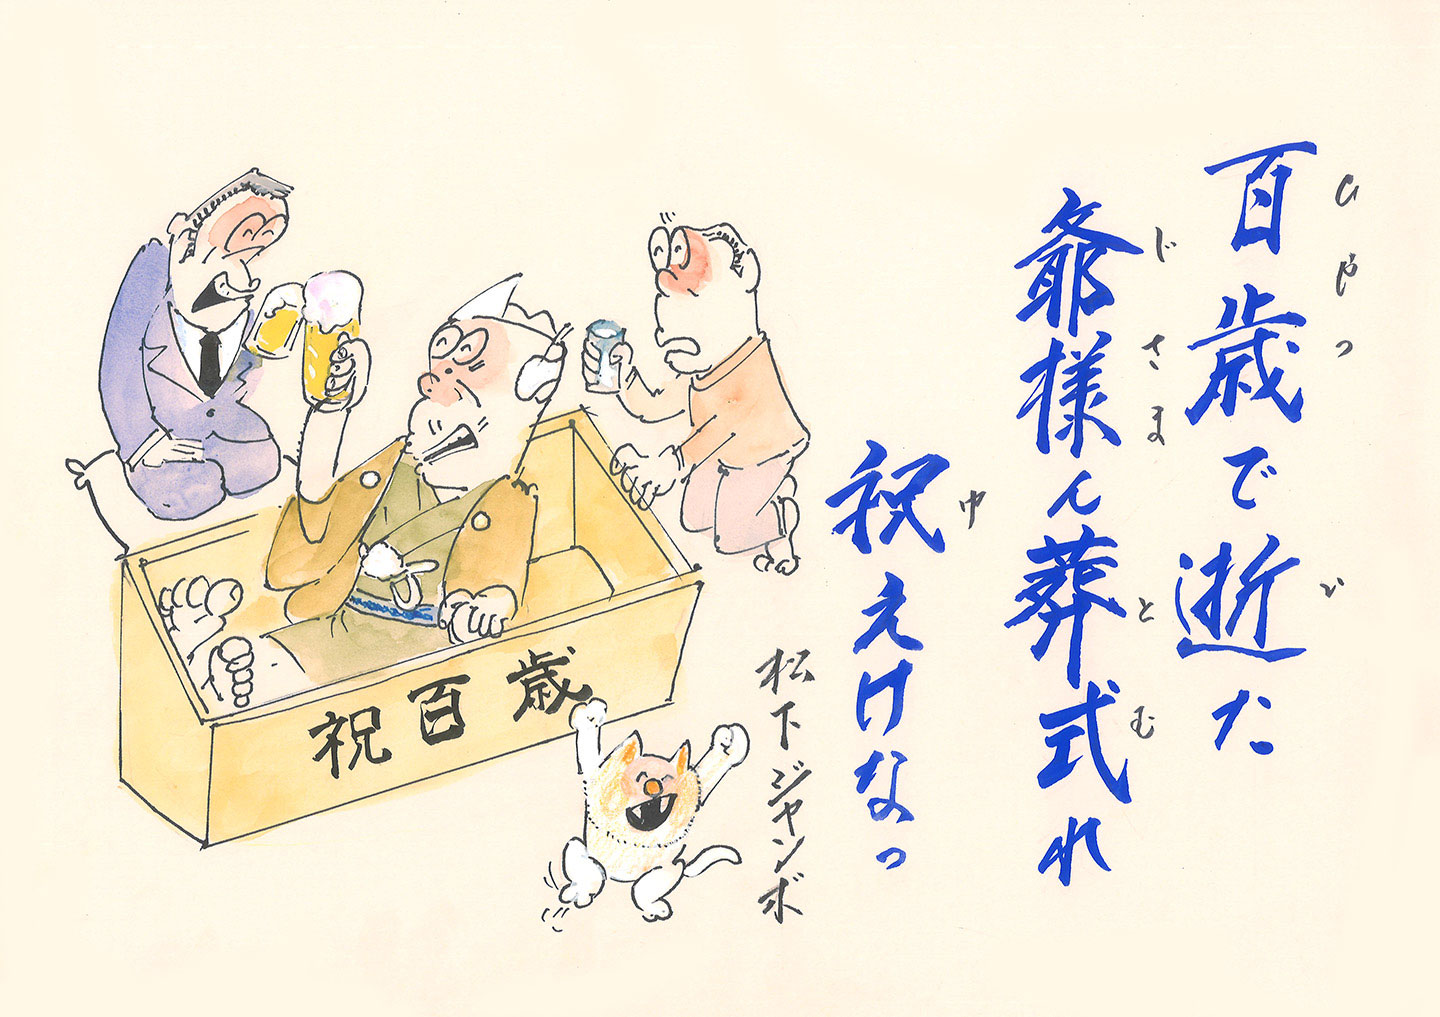 ひやつ い
百歳で逝た
じさま とむ
爺様ん葬式れ
ゆ
祝えけなっ
松下ジャンボ
祝百歳